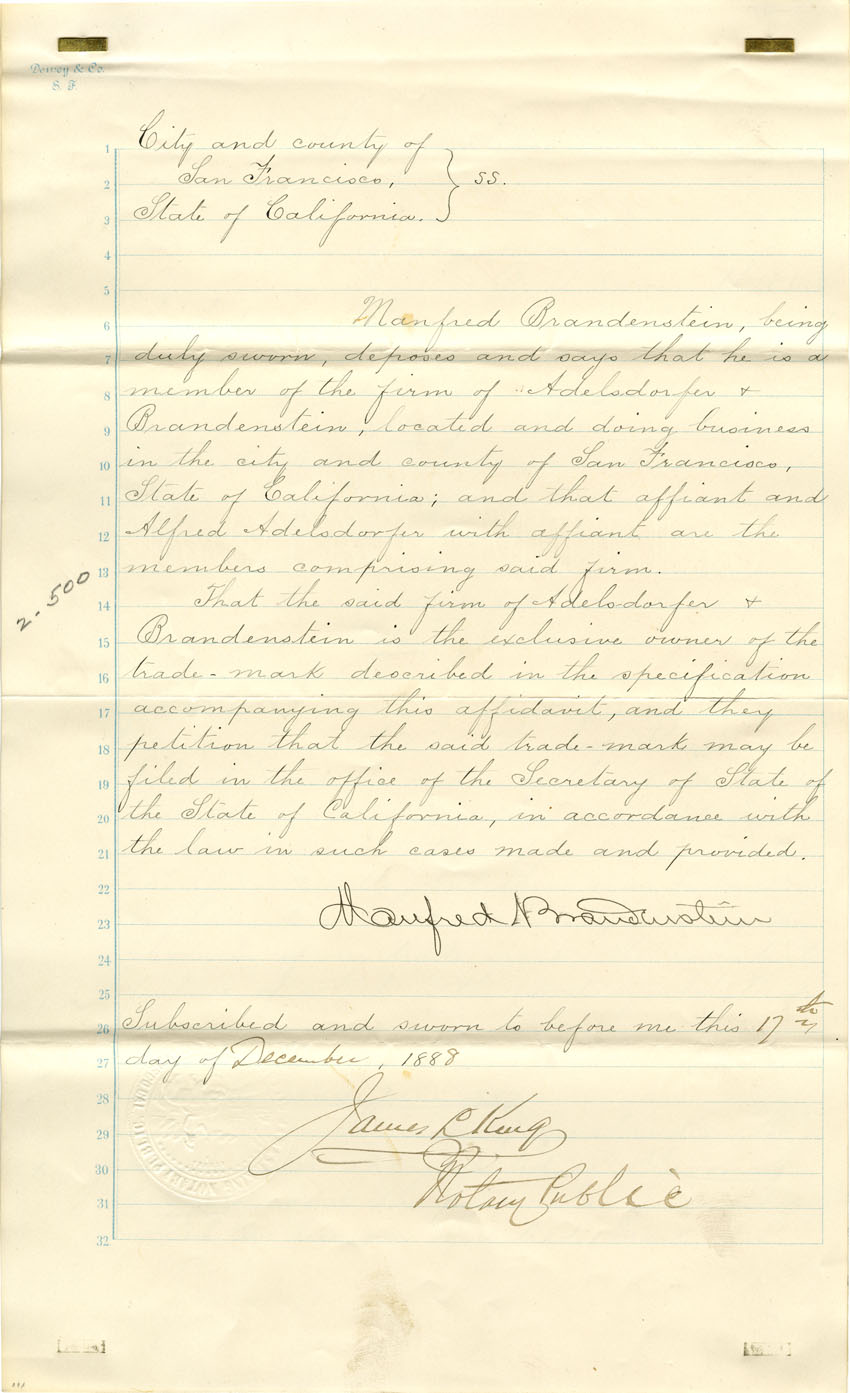 Dewey & Co.
S. F.
City and county of
San Francisco, } ss.
State of California.
Manfred Brandenstein, being
duly sworn, deposes and says that he is a
member of the firm of Adelsdorfer &
Brandenstein, located and doing business
in the city and county of San Francisco,
State of California; and that affiant and
Alfred Adelsdorfer with affiant are the
members comprising said firm.
2.500
That the said firm of Adelsdorfer &
Brandenstein is the exclusive owner of the
trade-mark described in the specification
accompanying this affidavit, and they
petition that the said trade-mark may be
filed in the office of the Secretary of State of
the State of California, in accordance with
the law in such cases made and provided.
Manfred Brandenstein
Subscribed and sworn to before me this 17th
day of December, 1888
James L King
Notary Public
1
2
3
4
5
6
7
8
9
10
11
12
13
14
15
16
17
18
19
20
21
22
23
24
25
26
27
28
29
30
31
32